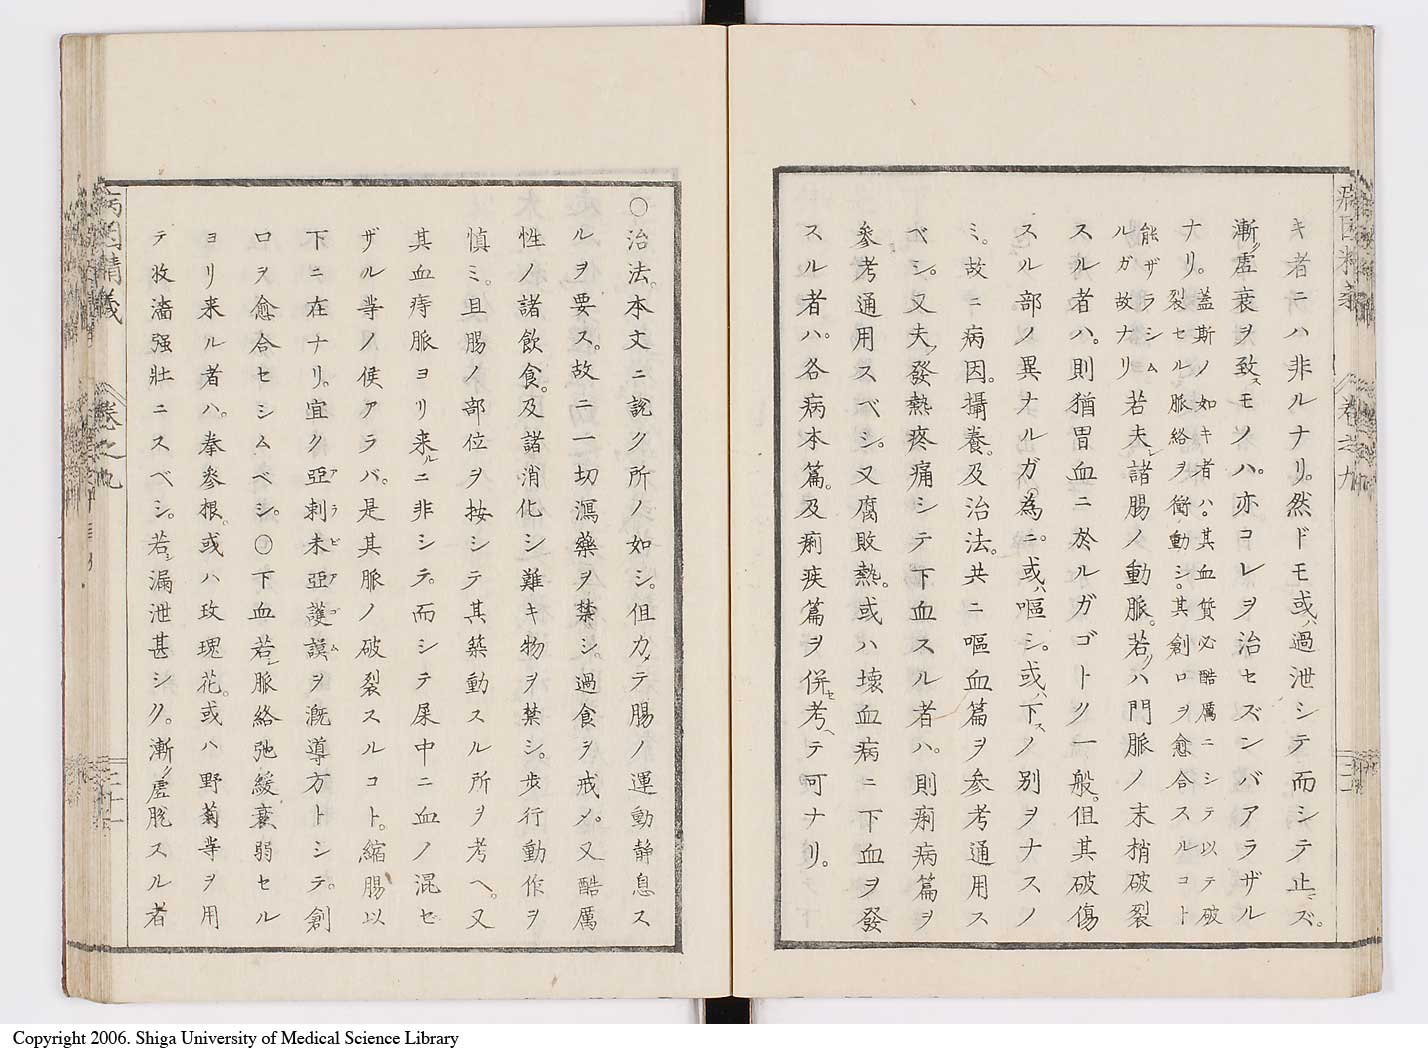 キ者ニハ非ルナリ。然ドモ或ハ過泄シテ而シテ止マズ。
漸ク虚衰ヲ致スモノハ。亦コレヲ治セズンバアラザル
ナリ。蓋斯ノ如キ者ハ。其血質必酷厲ニシテ以テ破
裂セル脈絡ヲ衝動シ。其創口ヲ愈合スルコト
能ザラシム
ルガ故ナリ
若夫レ諸腸ノ動脈。若クハ門脈ノ末梢破裂
スル者ハ。則猶胃血ニ於ルガゴトク一般。但其破傷
スル部ノ異ナルガ為ニ。或ハ嘔シ。或ハ下スノ別ヲナスノ
ミ。故ニ病因。攝養。及治法。共ニ嘔血篇ヲ参考通用ス
ベシ。又夫ノ發熱疼痛シテ下血スル者ハ。則痢病篇ヲ
參考通用スベシ。又腐敗熱。或ハ壊血病ニ下血ヲ發
スル者ハ。各病本篇。及痢疾篇ヲ併セ考ヘテ可ナリ。
病因精義
卷之九
○治法。本文ニ說ク所ノ如シ。但力メテ腸ノ運動静息ス
ルヲ要ス。故ニ一切瀉藥ヲ禁シ。過食ヲ戒メ。又酷厲
性ノ諸飲食。及諸消化シ難キ物ヲ禁シ。歩行動作ヲ
慎ミ。且腸ノ部位ヲ按シテ其築動スル所ヲ考ヘ。又
其血痔脈ヨリ来ルニ非シテ。而シテ屎中ニ血ノ混セ
ザル等ノ候アラバ。是其脈ノ破裂スルコト。縮腸以
下ニ在ナリ。宜ク亞剌未亞護謨アラビアゴムヲ漑導方トシテ。創
口ヲ愈合セシムベシ。○下血若シ脈絡弛緩衰弱セル
ヨリ来ル者ハ。拳参根。或ハ玫瑰花。或ハ野菊等ヲ用
テ收濇强壯ニスベシ。若シ漏泄甚シク。漸ク虚脫スル者
病因精義
卷之九
二十一